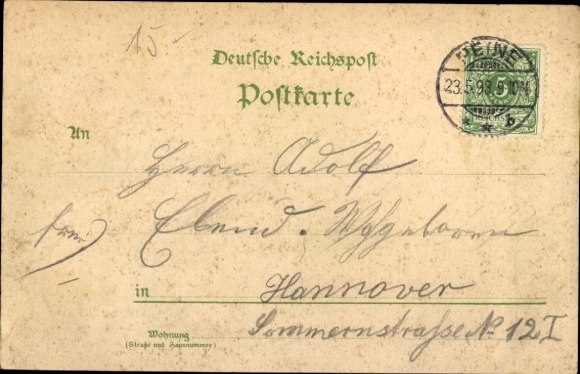 15-
Deutsche Reichspost
Postkarte
PEINE
23.5.98.9-10N.
* b
5
An
Herrn Adolf
frei
Ebend. Wohlgeboren
in Hannover
Wohnung
(Straße und Hausnummer)
Sommernstraße No 12 I